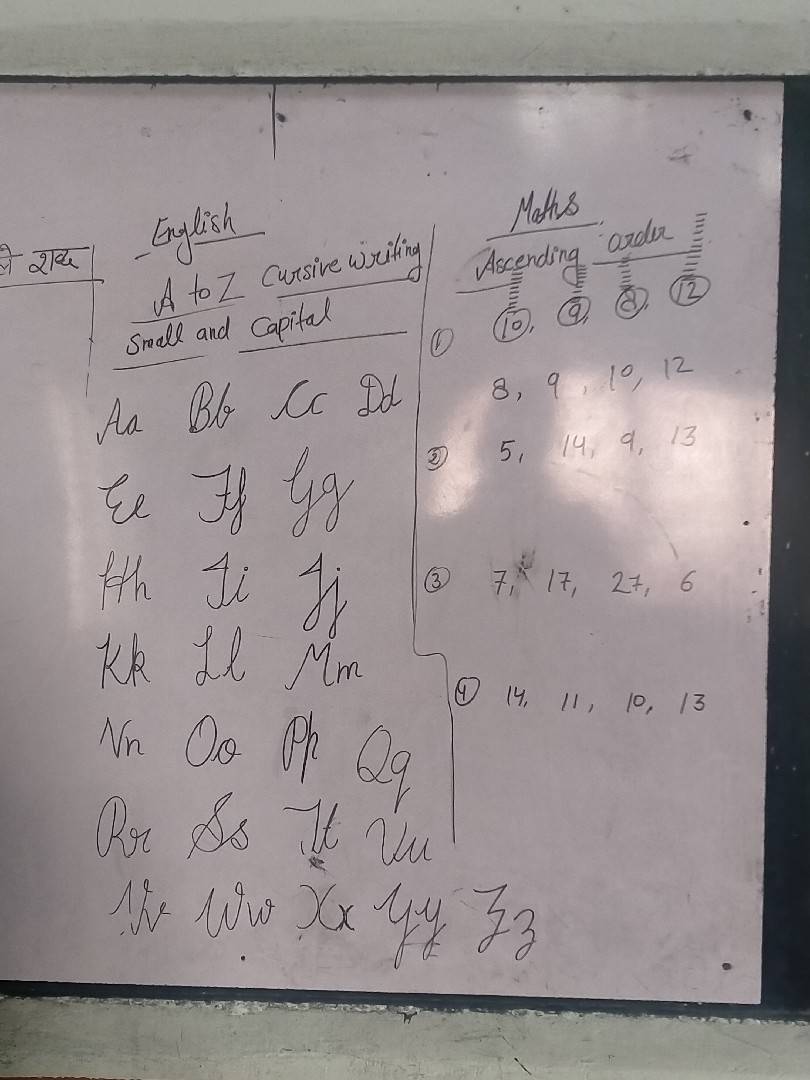 ले शब्द
English
A to Z Cursive writing
Small and Capital
Aa Bb Cc Dd
Ee Ff Gg
Hh Ii Jj
Kk Ll Mm
Nn Oo Pp Qq
Rr Ss Tt Uu
Vv Ww Xx Yy Zz
Maths
Ascending order
① 10, 9, 8, 12
8, 9, 10, 12
② 5, 14, 9, 13
③ 7, 17, 27, 6
④ 14, 11, 10, 13